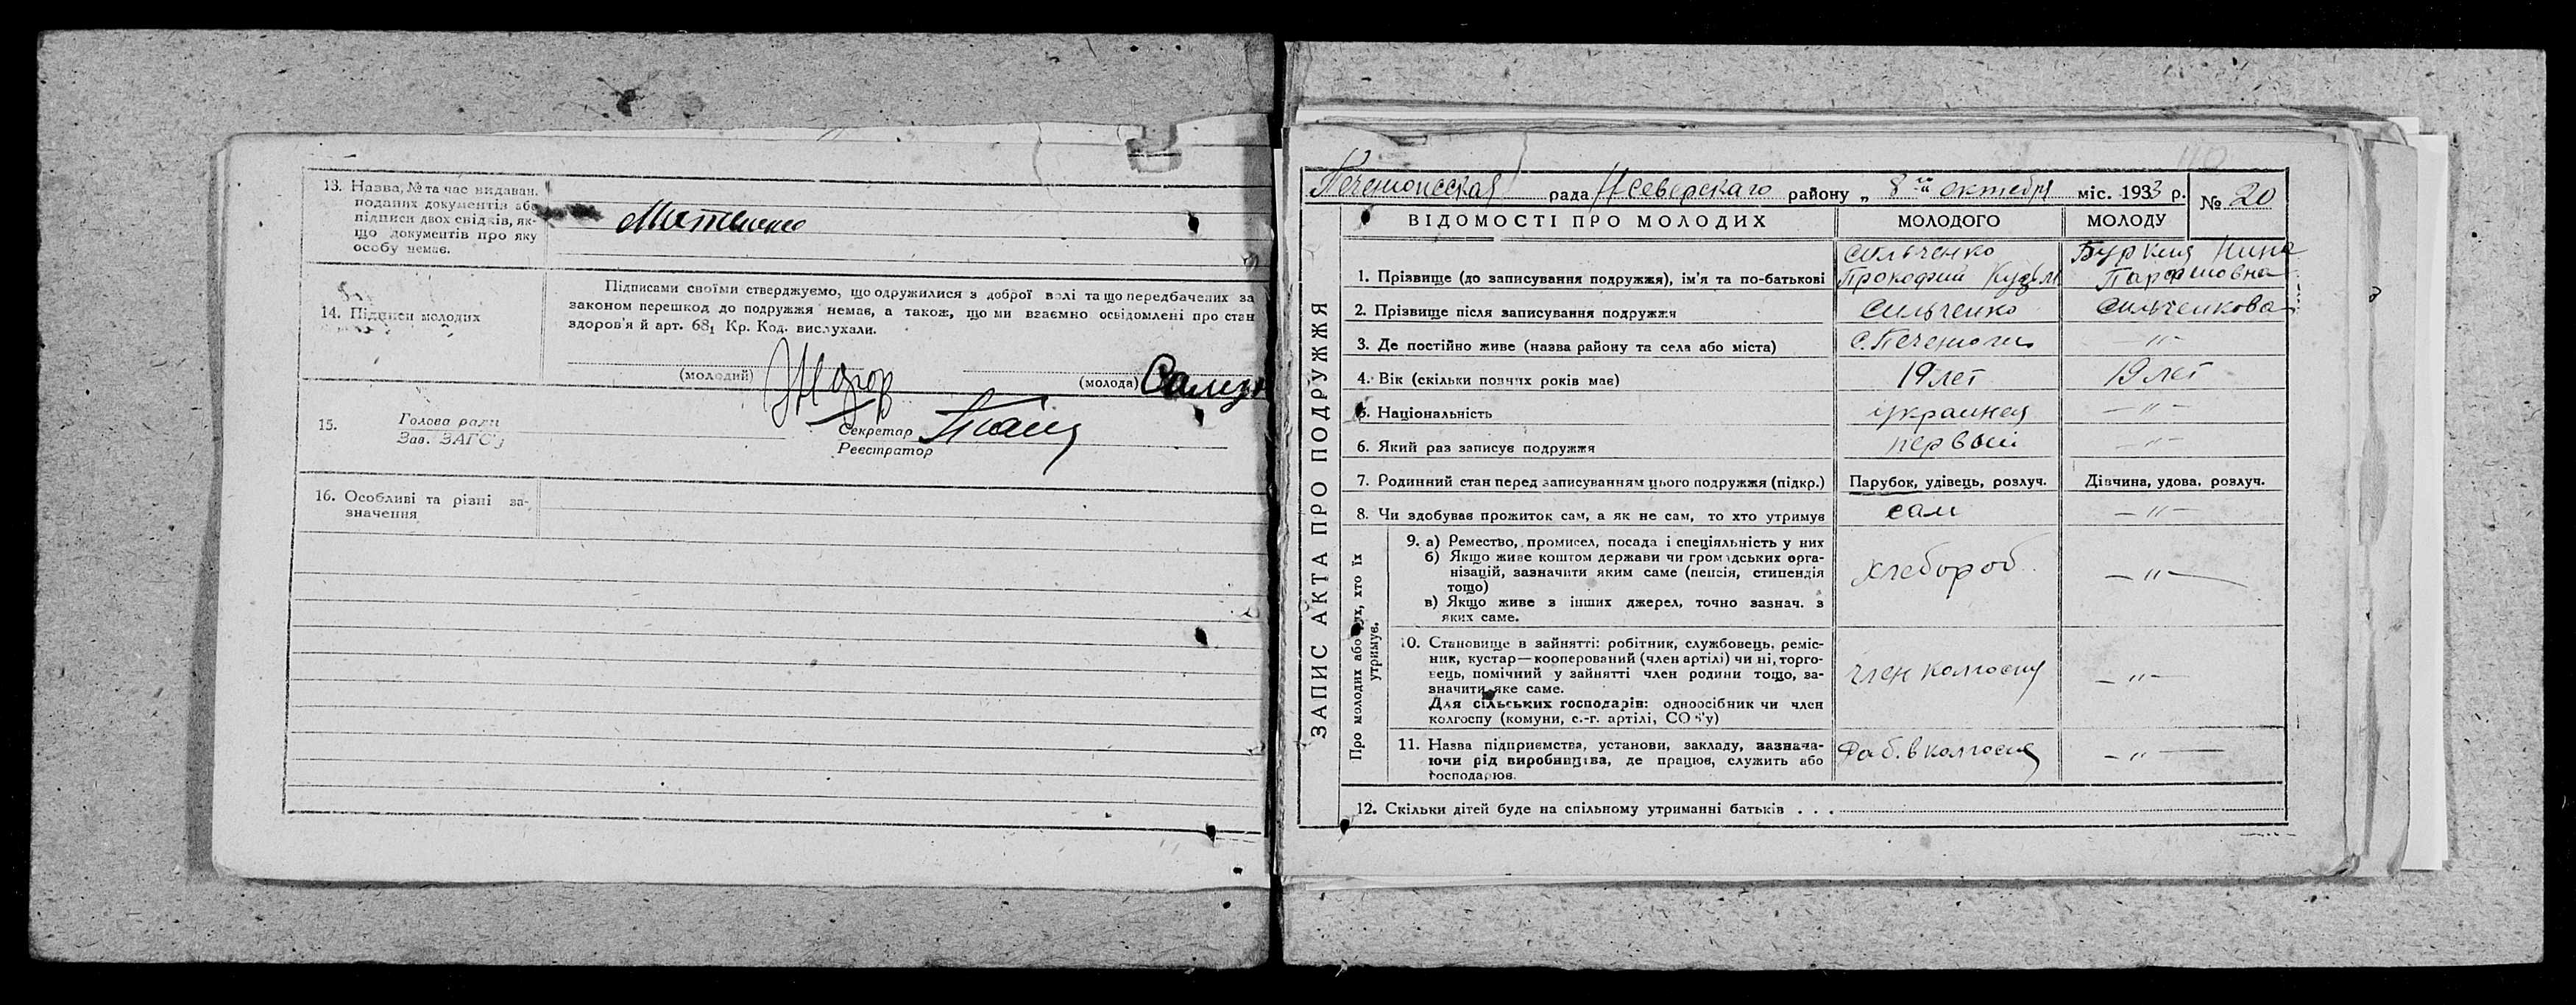 13. Назва, № та час видаван.
поданих документів або
підписи двох свідків, як-
що документів про яку
особу немає.
14. Підписи молодих
Підписами своїми стверджуємо, що одружилися з доброї волі та що передбачених за
законом перешкод до подружжя немає, а також, що ми взаємно освідомлені про стан
здоров'я й арт. 68₁ Кр. Код. вислухали.
(молодий)
(молода)
15. Голова ради
Зав. ЗАГС'у
Секретар
Реєстратор
16. Особливі та різні за-
значення
ЗАПИС АКТА ПРО ПОДРУЖЖЯ
рада Н Северскаго району „ 8го " октебря міс. 1933 р. № 20
ВІДОМОСТІ ПРО МОЛОДИХ МОЛОДОГО МОЛОДУ
1. Прізвище (до записування подружжя), ім'я та по-батькові Сильченко Прокофий Нина
2. Прізвище після записування подружжя Сильченко Сильченкова
3. Де постійно живе (назва району та села або міста) с. Печенюги — " —
4. Вік (скільки повних років має) 19 лет 19 лет
5. Національність — " —
6. Який раз записує подружжя первый — " —
7. Родинний стан перед записуванням цього подружжя (підкр.) Парубок, удівець, розлуч. Дівчина, удова, розлуч.
8. Чи здобуває прожиток сам, а як не сам, то хто утримує сам — " —
Про молодих або тих, хто їх
утримує.
9. а) Ремество, промисел, посада і спеціяльність у них
б) Якщо живе коштом держави чи громадських орга-
нізацій, зазначити яким саме (пенсія, стипендія
тощо)
в) Якщо живе з інших джерел, точно зазнач. з
яких саме.
хлебороб — " —
10. Становище в зайнятті: робітник, службовець, реміс-
ник, кустар—кооперований (член артілі) чи ні, торго-
вець, помічний у зайнятті член родини тощо, за-
значити яке саме.
Для сільських господарів: одноосібник чи член
колгоспу (комуни, с.-г. артілі, СОЗ'у)
член колгоспу — " —
11. Назва підприємства, установи, закладу, зазнача-
ючи рід виробництва, де працює, служить або
господарює.
раб. в колгоспе — " —
12. Скільки дітей буде на спільному утриманні батьків . . .